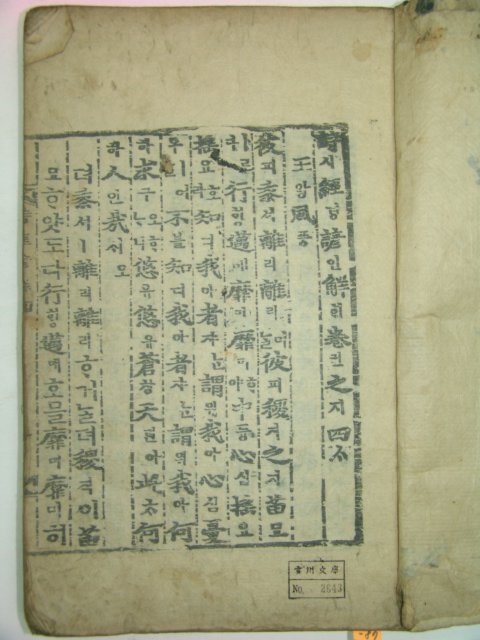 詩시經경諺언解ᄒᆡ卷권之지四ᄉᆞ
王왕風풍
彼피黍셔離리離리ᄒᆞ며彼피稷직之지苗묘
로다行ᄒᆡᆼ邁매靡미靡미ᄒᆞ야中듕心심搖요
搖요호라知디我아者쟈ᄂᆞᆫ謂위我아心심憂
우ㅣ어ᄂᆞᆯ不블知디我아者쟈ᄂᆞᆫ謂위我아何
하求구오ᄒᆞᄂᆞ니悠유悠유蒼창天텬아此ᄎᆞ何
하人인哉ᄌᆡ오
뎌黍셔ㅣ離리離리ᄒᆞ거ᄂᆞᆯ뎌稷직이苗
묘ᄒᆞ얏도다行ᄒᆡᆼ邁매호믈靡미靡미히
No. 2643